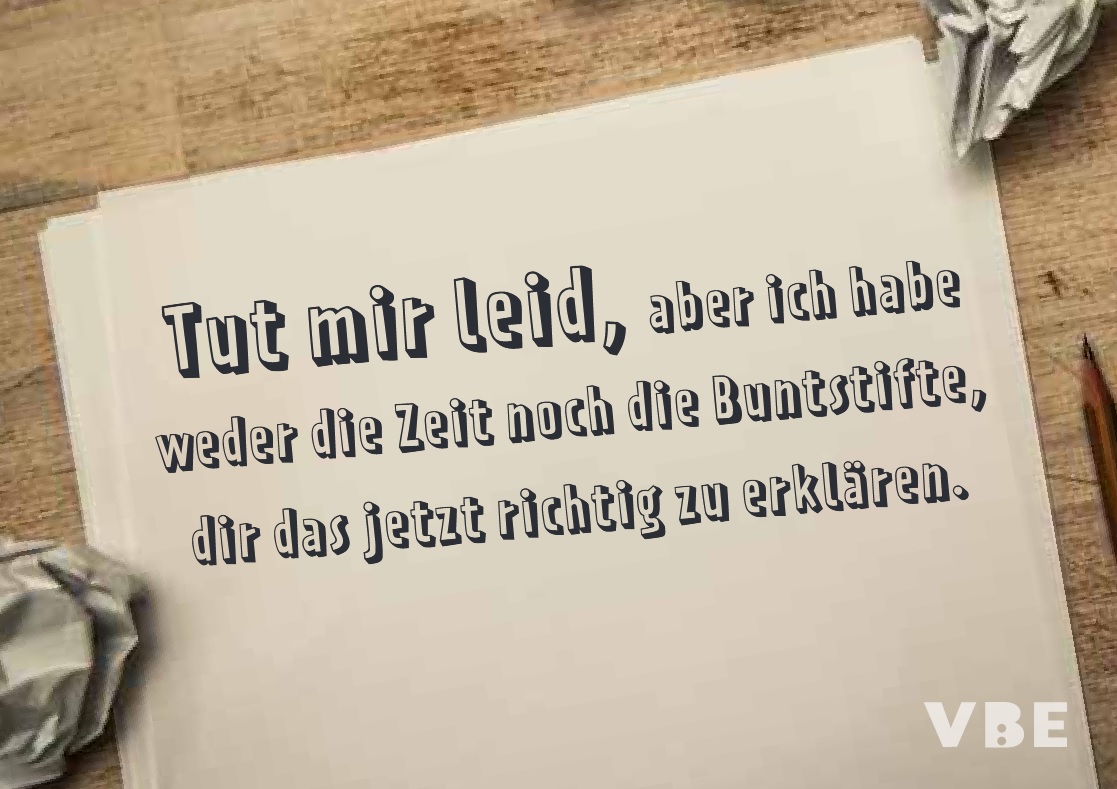 Tut mir leid, aber ich habe
weder die Zeit noch die Buntstifte,
dir das jetzt richtig zu erklären.
VBE